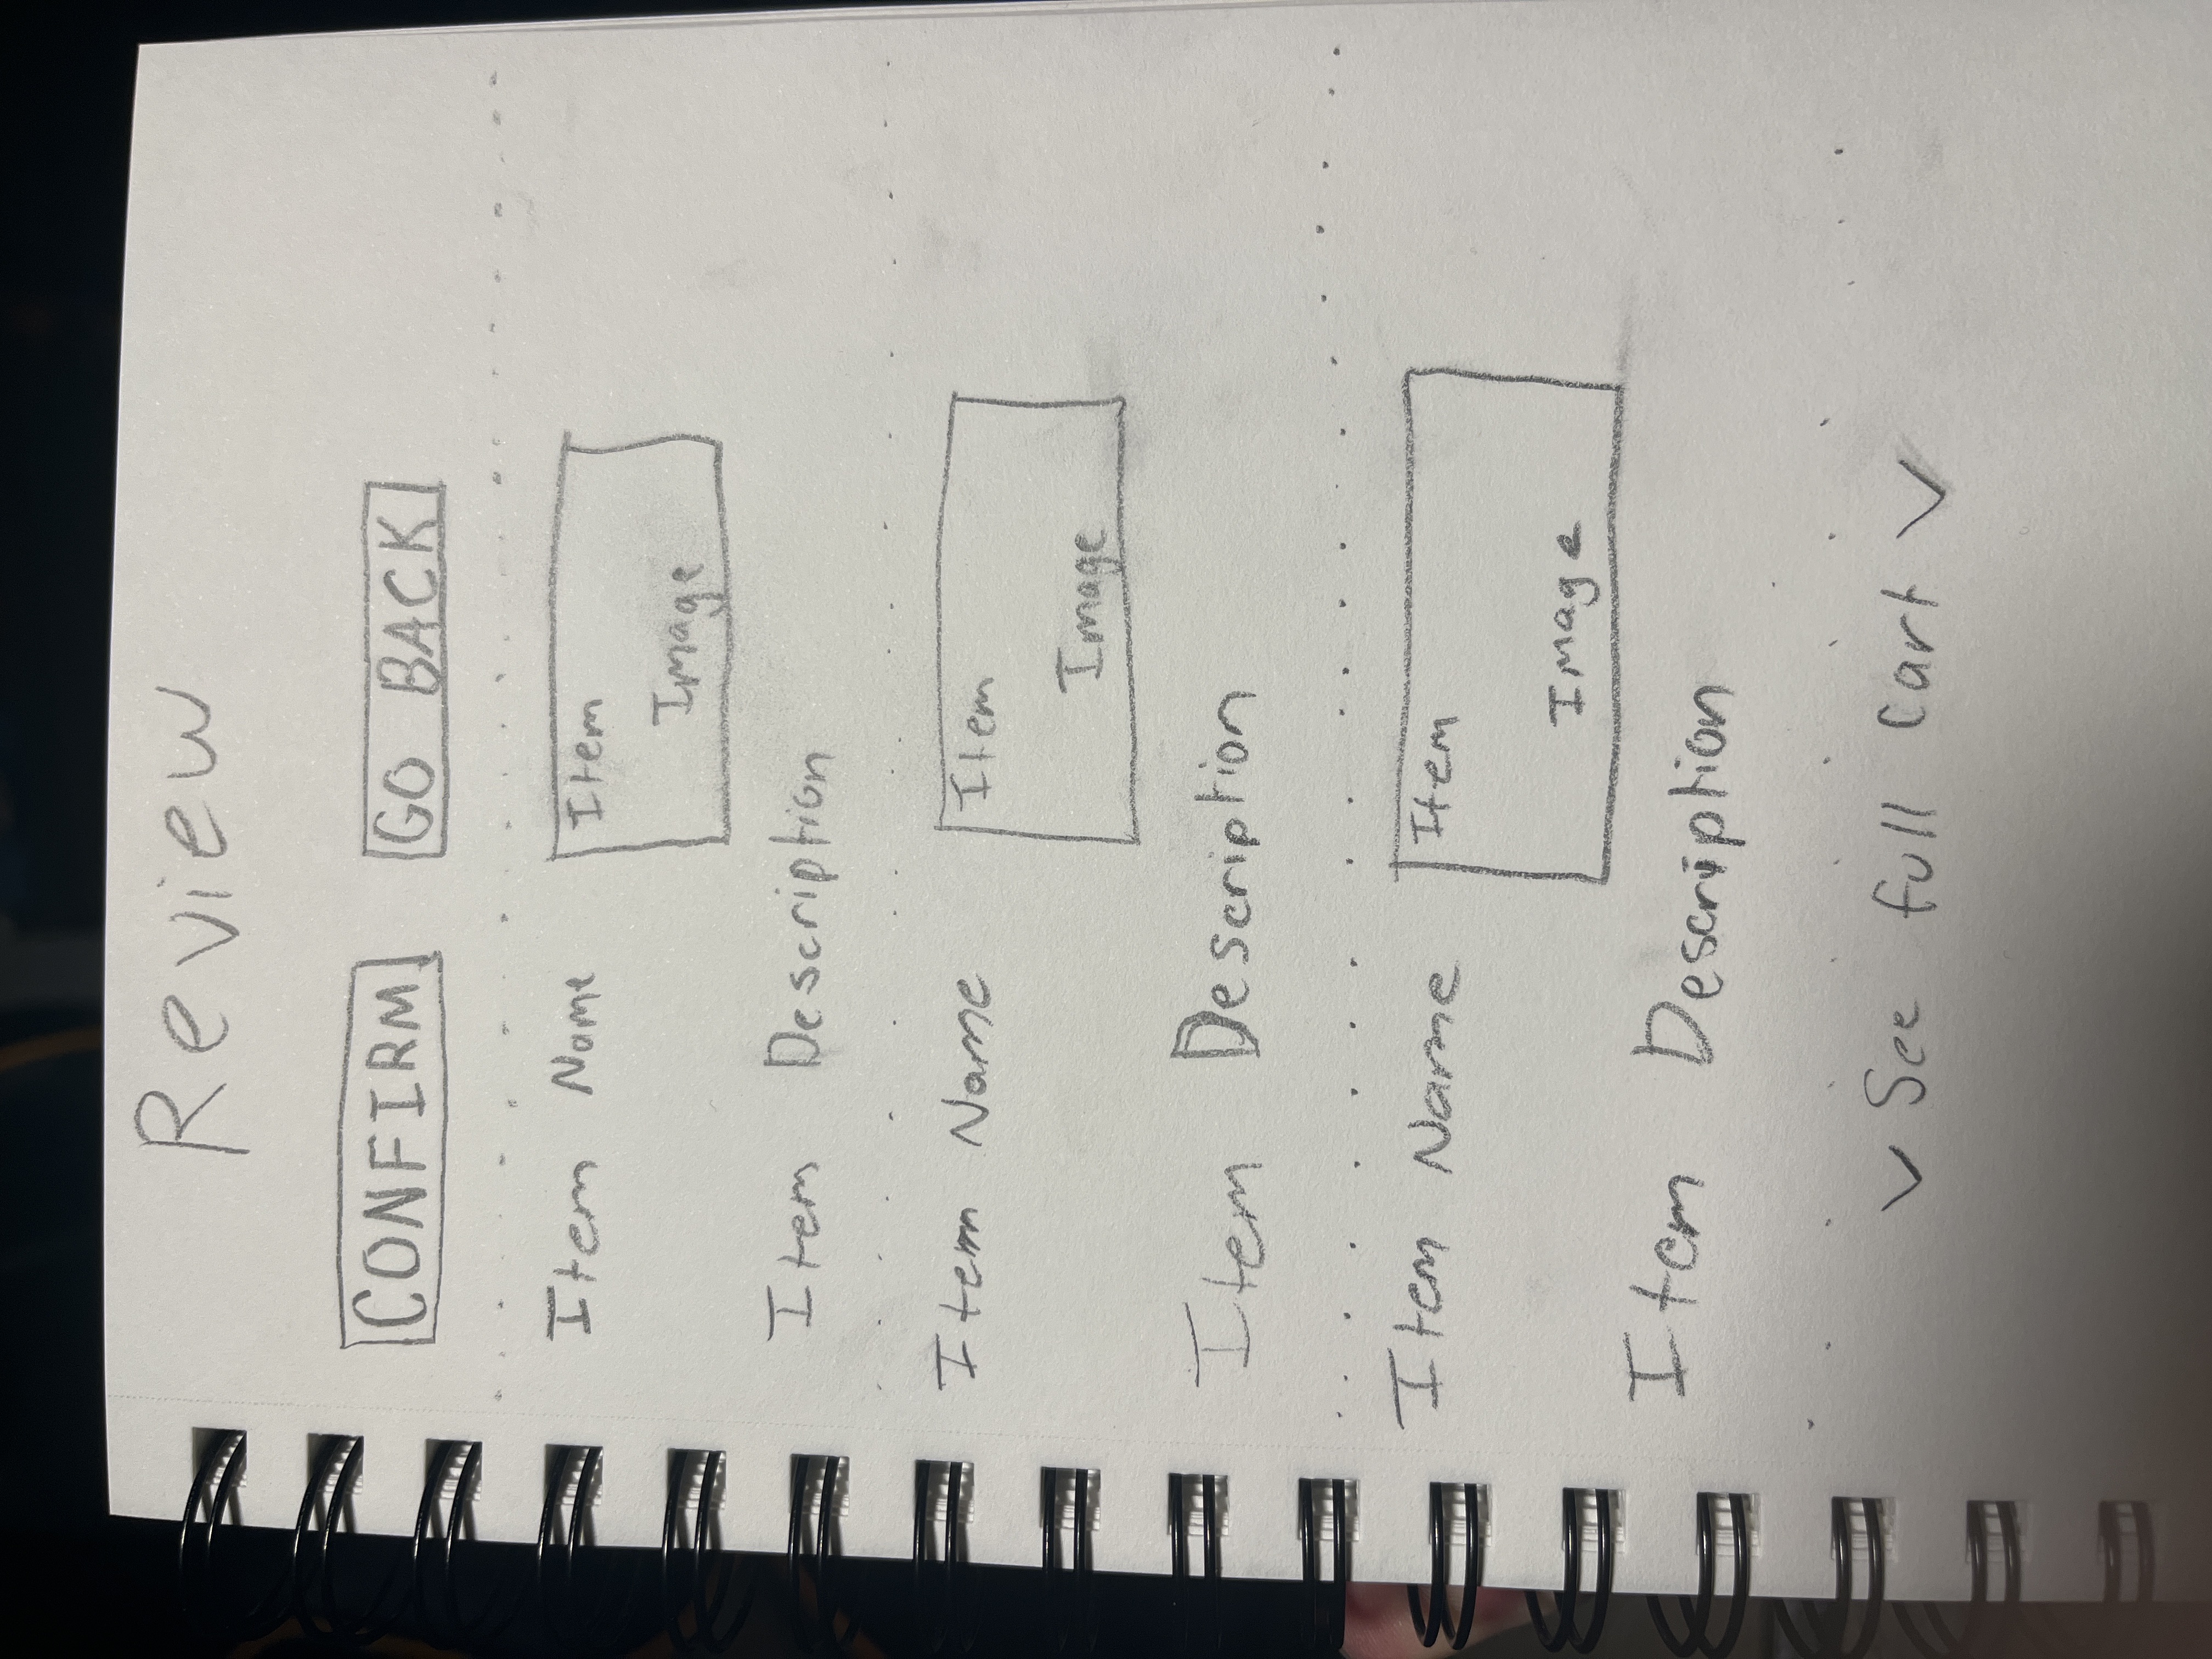 Review
CONFIRM GO BACK
Item Name
Item
Image
Item Description
Item Name
Item
Image
Item Description
Item Name
Item
Image
Item Description
See full cart